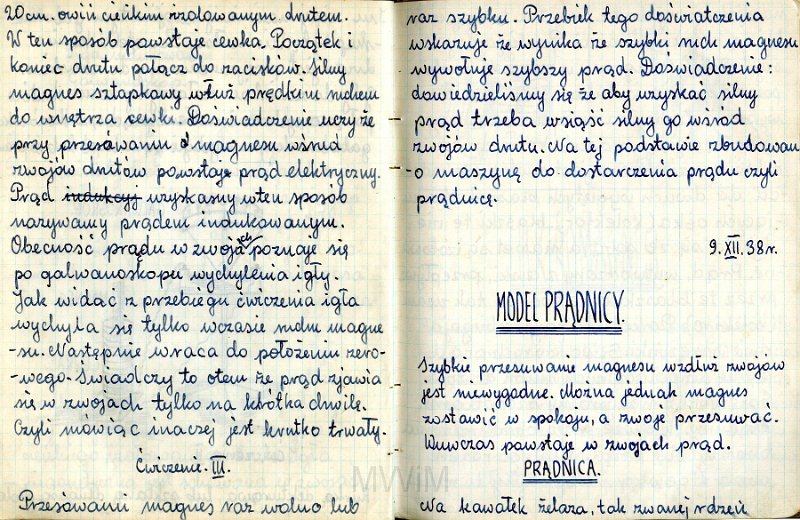 20cm. owiń cieńkim izolowanym drutem.
W ten sposób powstaje cewka. Początek i
koniec drutu połącz do zacisków. Silny
magnes sztapkowy włuż prędkim ruchem
do wnętrza cewki. Doświadczenie uczy że
przy przesówaniu magnesu wśród
zwojów drutów powstaje prąd elektryczny.
Prąd indukcyj uzyskamy wten sposób
nazywamy prądem indukowanym.
Obecność prądu w zwojach poznaje się
po galwanoskopu wychylenia igły.
Jak widać z przebiegu ćwiczenia igła
wychyla się tylko wczasie ruchu magne
-su. Następnie wraca do położeniu zero-
-wego. Świadczy to otem że prąd zjawia
się w zwojach tylko na krótka chwile.
Czyli mówiąc inaczej jest krutko trwały.
Ćwiczenie. III.
Przesówanii magnes raz wolno lub
raz szybku. Przebiek tego doświatczenia
wskazuje że wynika że szybki ruch magnesu
wywołuje szybszy prąd. Doświadczenie:
dowiedzieliśmy się że aby uzyskać silny
prąd trzeba wsiąść silny go wśród
zwojów drutu. Na tej podstawie zbudowan
-o maszynę do dostarczenia prądu czyli
prądnicę.
9. XII. 38r.
MODEL PRĄDNICY.
Szybkie przesuwanie magnesu wzdłuż zwojów
jest niewygodne. Można jednak magnes
zostawić w spokoju, a zwoje przesuwać.
Wuwczas powstaje w zwojach prąd.
PRĄDNICA.
Na kawałek żelaza, tak zwanej rdzeń
MWiM